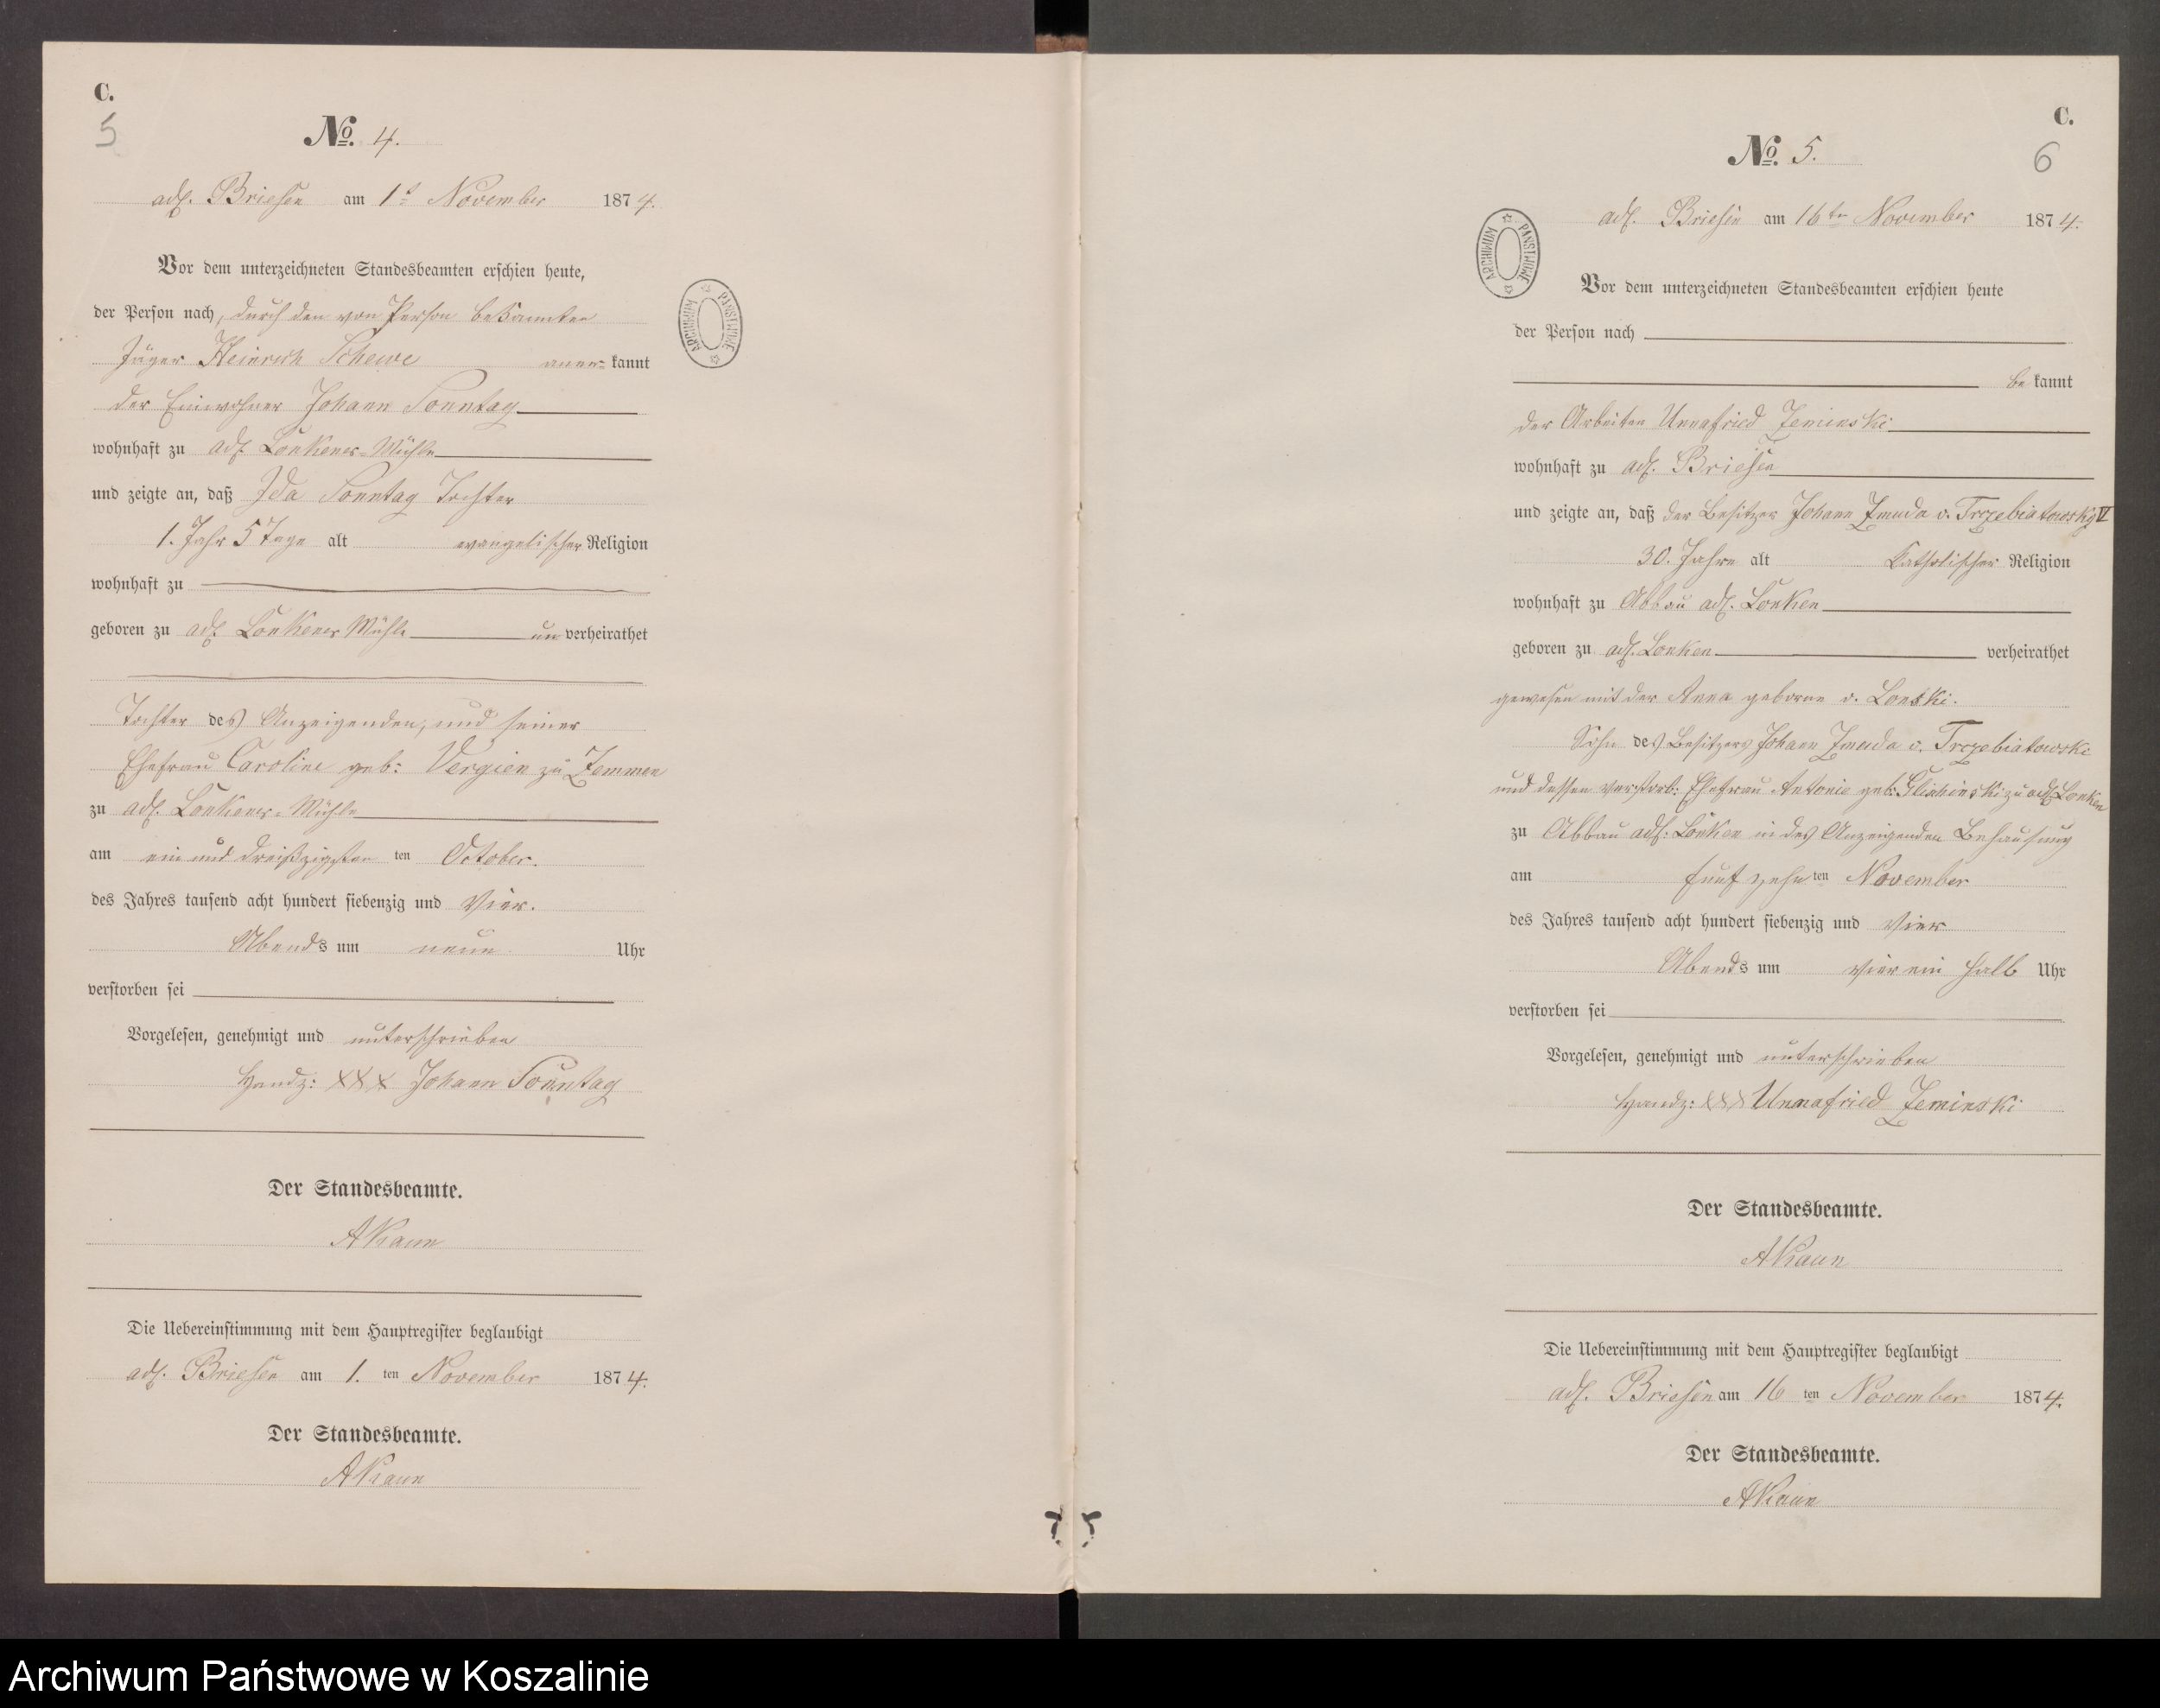 C.
5
No. 4.
adl. Briesen am 1t November 1874.
Vor dem unterzeichneten Standesbeamten erschien heute,
der Person nach, durch den von Person bekannten
Jäger Heinrich Schewe aner= kannt
der Einwohner Johann Sonntag
wohnhaft zu adl. Lonkener-Mühle
und zeigte an, daß Ida Sonntag Tochter
1. Jahr 5 Tage alt evangelischer Religion
wohnhaft zu
geboren zu adl Lonkener Mühle un verheirathet
Tochter des Anzeigenden, und seiner
Ehefrau Caroline geb: Vergien zu Zemmen
zu adl. Lonkener-Mühle
am ein und dreißzigsten ten October.
des Jahres tausend acht hundert siebenzig und Vier.
Abends um neun Uhr
verstorben sei
Vorgelesen, genehmigt und unterschrieben
Handz: XXX Johann Sonntag
Der Standesbeamte.
AKaun
Die Uebereinstimmung mit dem Hauptregister beglaubigt
adl. Briesen am 1. ten November 1874.
Der Standesbeamte.
AKaun
ARCHIWUM PAŃSTWOWE
C.
6
No. 5.
adl. Briesen am 16ten November 1874.
ARCHIWUM PAŃSTWOWE
Vor dem unterzeichneten Standesbeamten erschien heute
der Person nach
be kannt
der Arbeiter Unnafried Zeminski
wohnhaft zu adl. Briesen
und zeigte an, daß der Besitzer Johann Zmuda v. Trzebiatowski
30. Jahre alt Katholischer Religion
wohnhaft zu Abbau adl. Lonken
geboren zu adl. Lonken verheirathet
gewesen mit der Anna geborne v. Lonski.
Sohn des Besitzers Johann Zmuda v. Trzebiatowski
und dessen verstorb: Ehefrau Antonie geb: zu adl Lonken
zu Abbau adl: Lonken in des Anzeigenden Behausung
am funfzehn ten November
des Jahres tausend acht hundert siebenzig und Vier
Abends um vier ein halb Uhr
verstorben sei
Vorgelesen, genehmigt und unterschrieben
Handz: XXX Unnafried Zeminski
Der Standesbeamte.
AKaun
Die Uebereinstimmung mit dem Hauptregister beglaubigt
adl. Briesen am 16 ten November 1874.
Der Standesbeamte.
AKaun
Archiwum Państwowe w Koszalinie